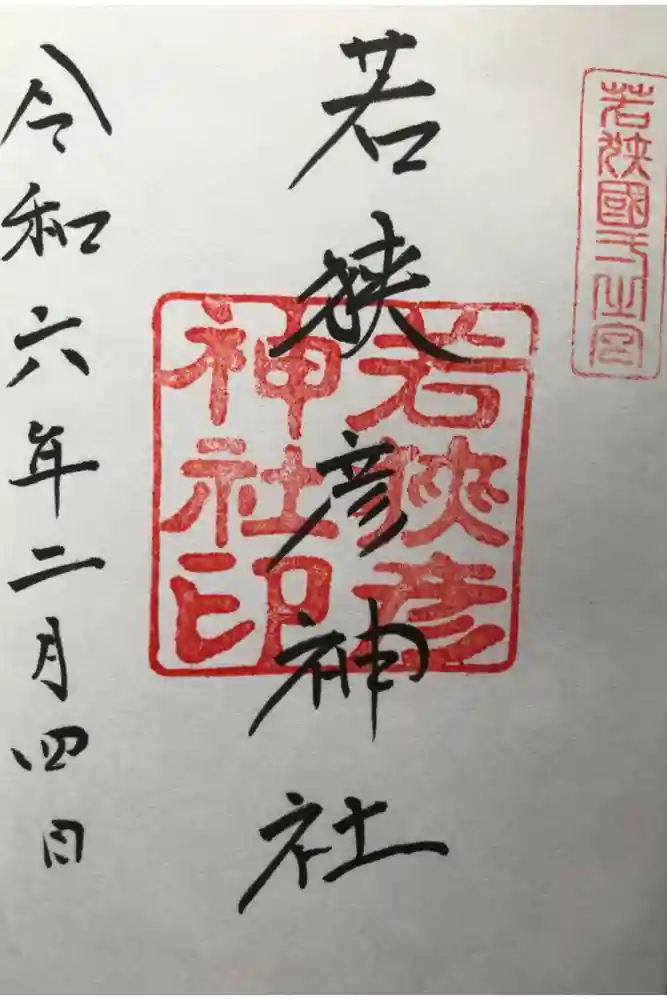 若狭國弌之宮
若狭彦神社
若狭彦
神社印
令和六年二月四日